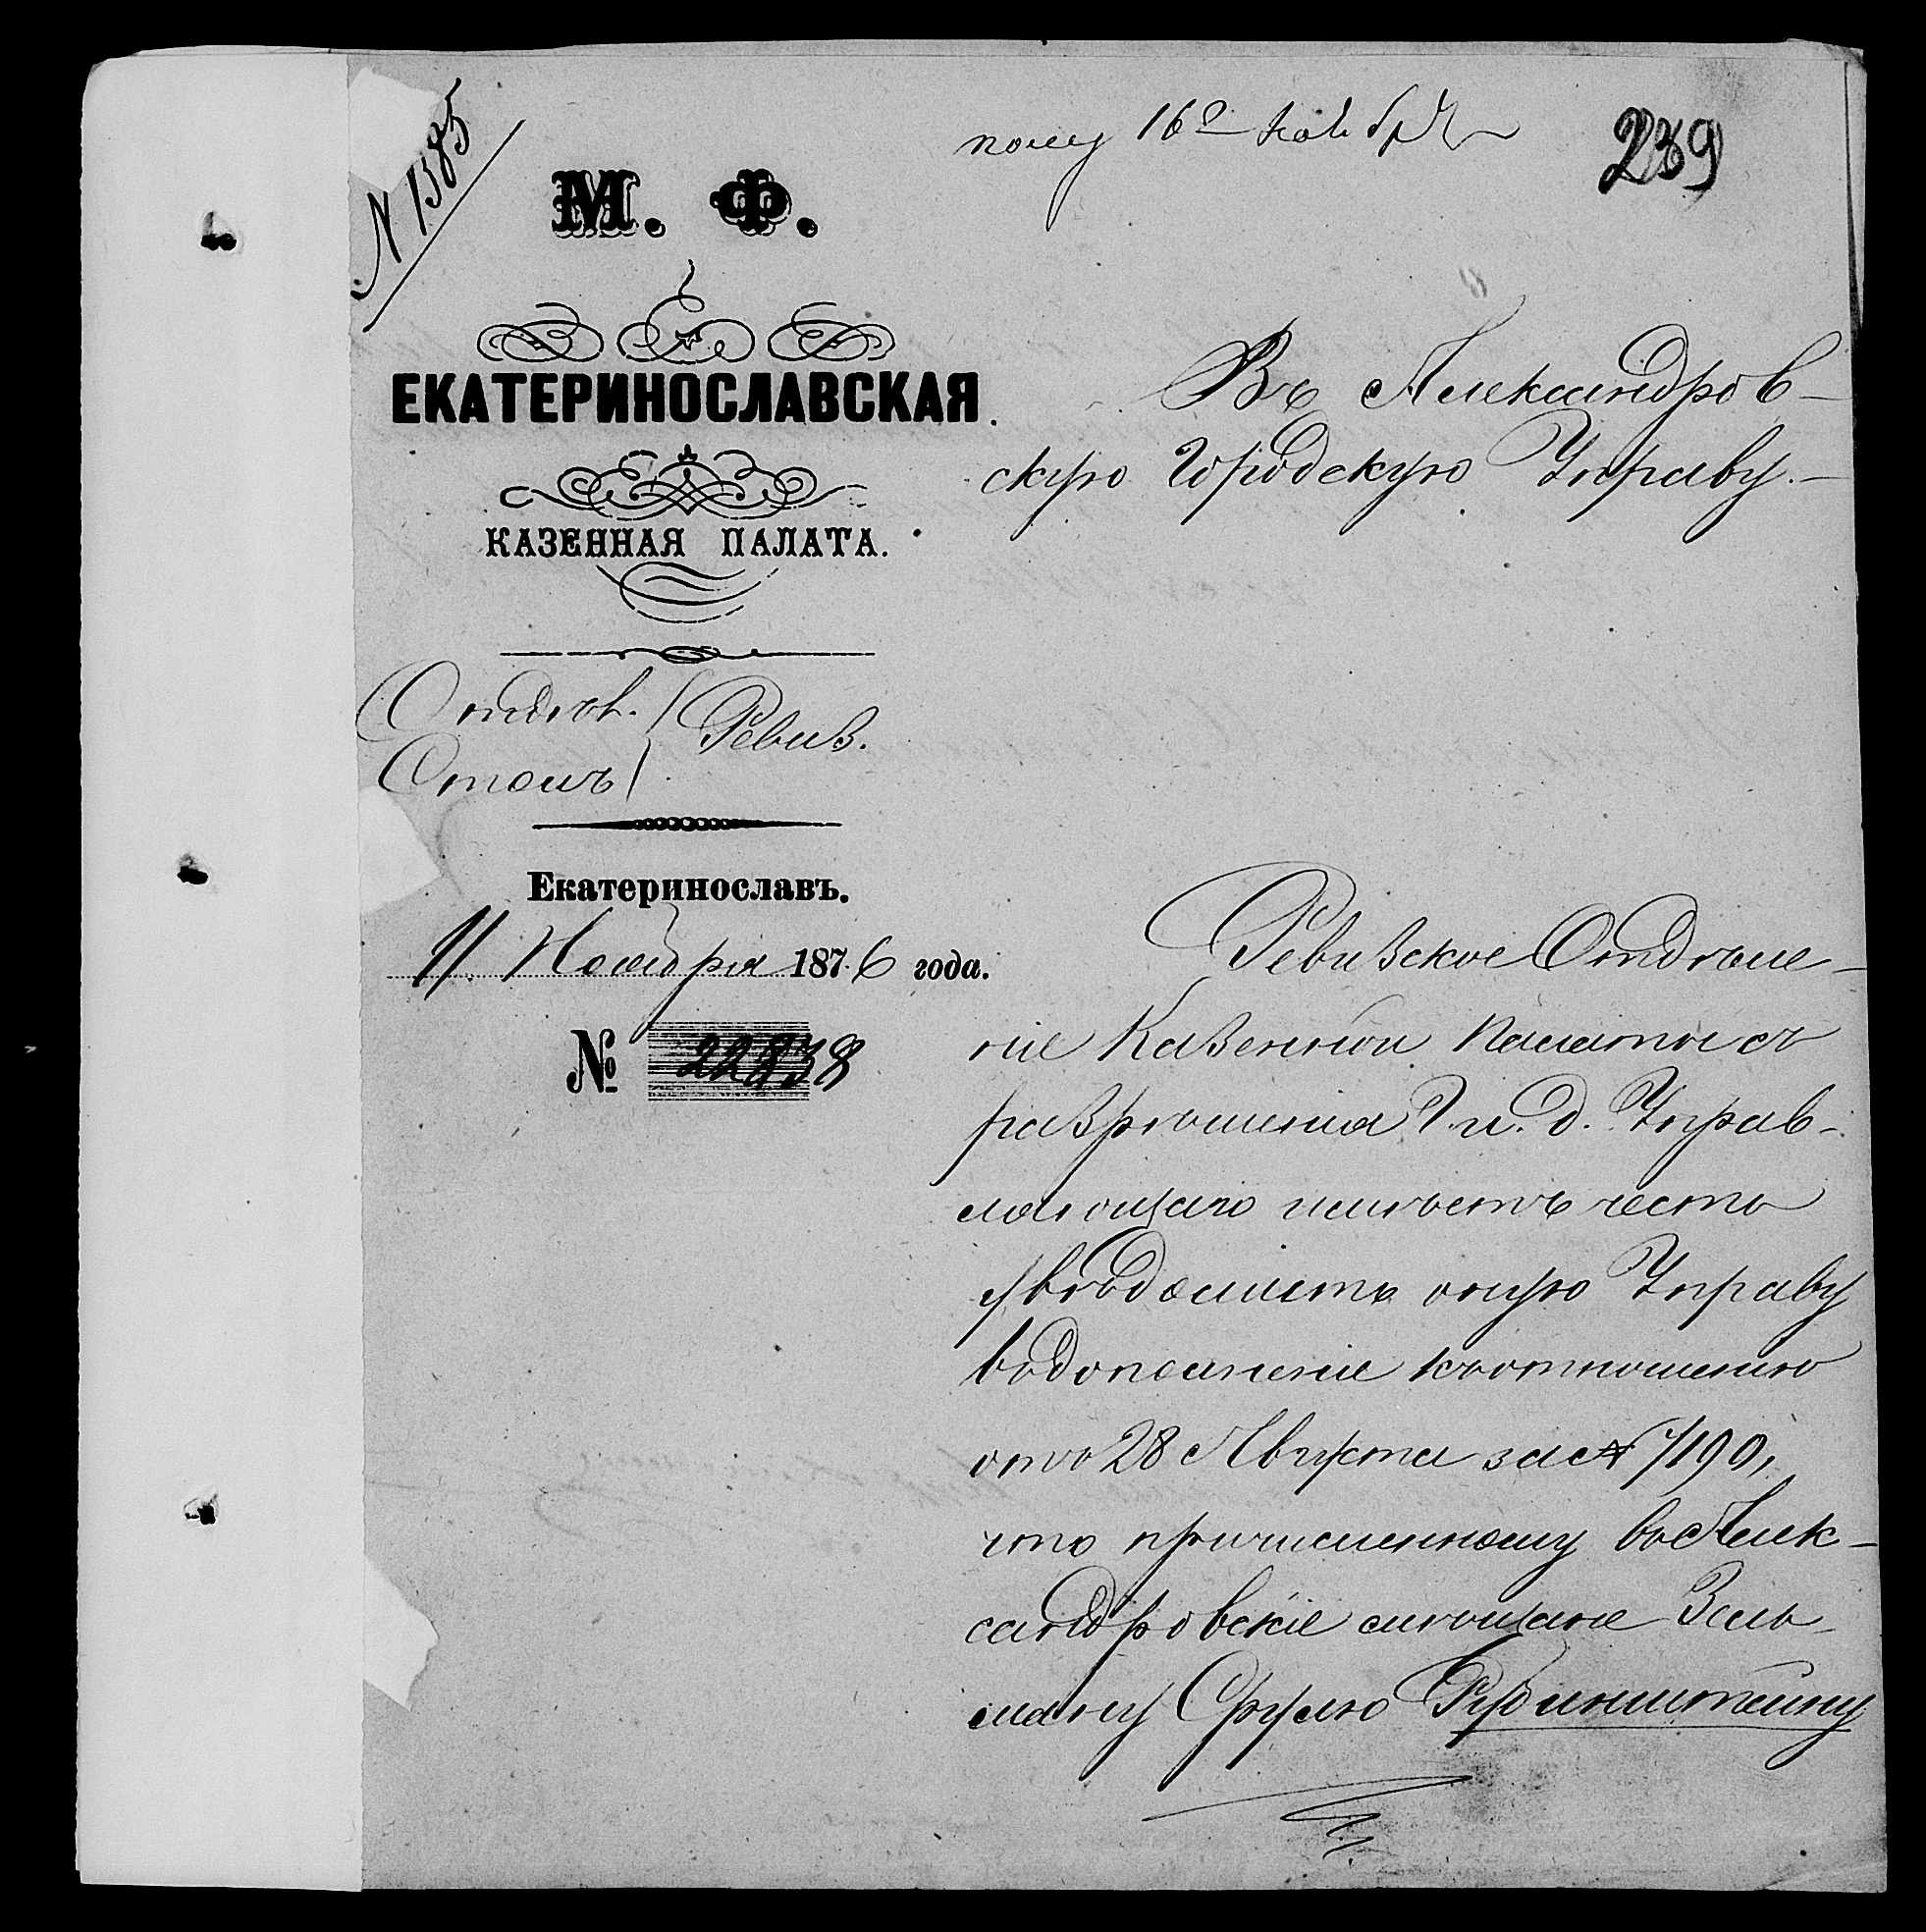 № 1385
полу 16го ноября
239
М. Ф.
ЕКАТЕРИНОСЛАВСКАЯ
КАЗЕННАЯ ПАЛАТА.
Отдѣл. Ревиз.
Столъ
Екатеринославъ.
11 Ноября 1876 года.
№ 22838
Въ Александров-
скую Городскую Управу.
Ревизское Отдѣле-
ніе Казенной Палаты съ
разрѣшенія Г. и. д. Управ-
ляющаго имѣетъ честь
увѣдомить оную Управу
въ дополненіе къ отношенію
отъ 28 Августа за № 7190,
что причисленному въ Алек-
сандровскіе мѣщане Заль-
ману Срулю Рубинштейну